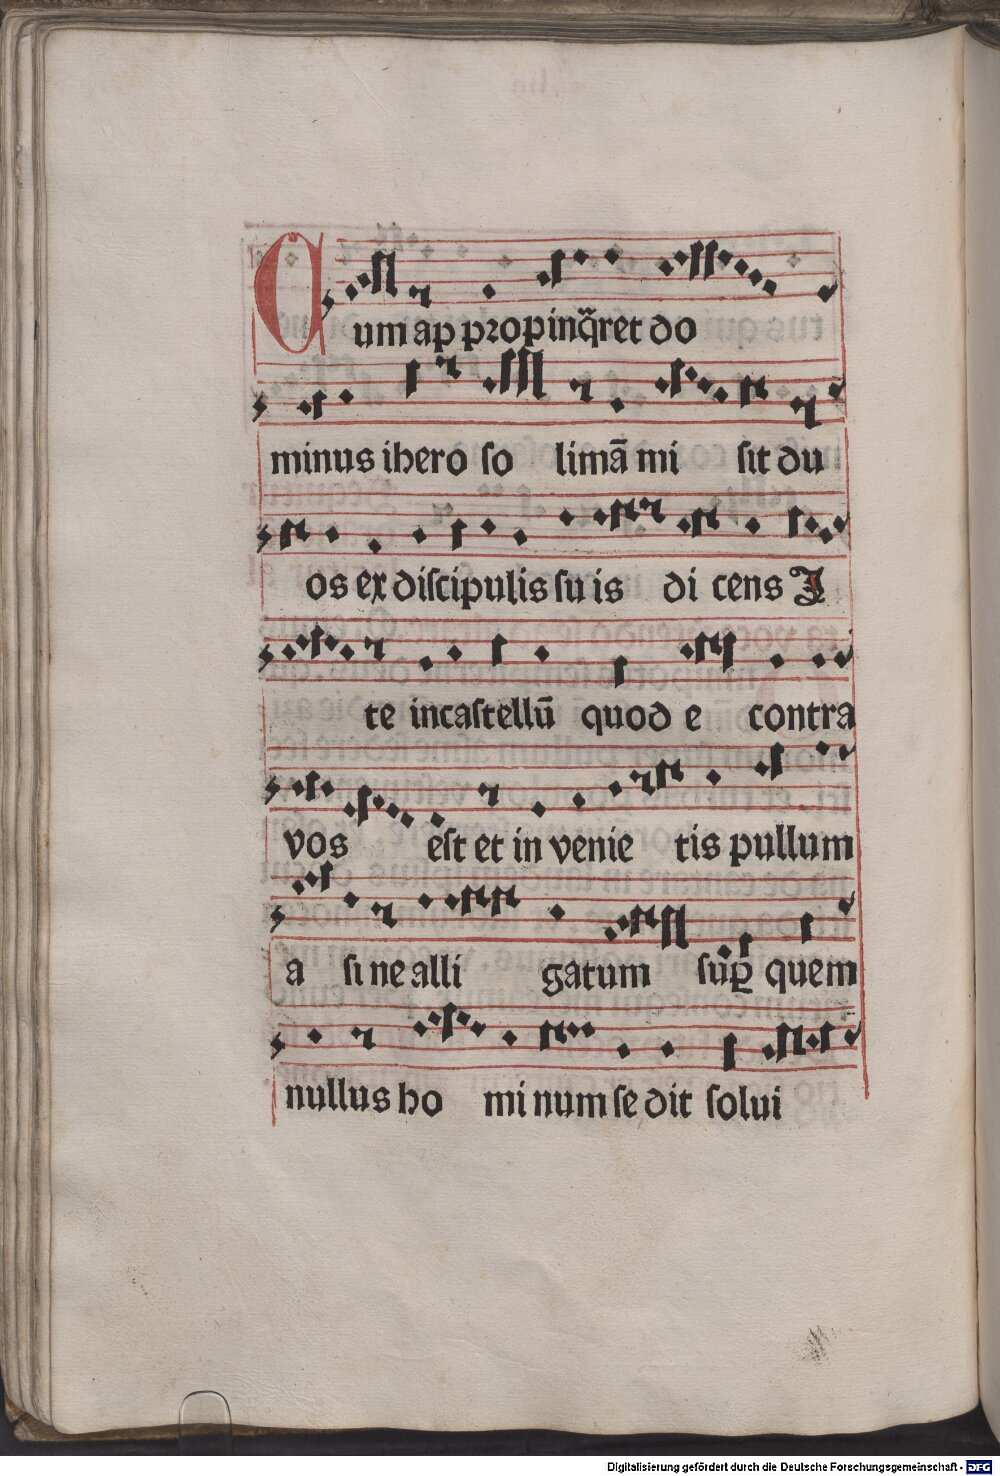 Cum ap propinq̄ret do
minus ihero so limā mi sit du
os ex discipulis su is di cens I
te in castellū quod e contra
vos est et in venie tis pullum
a si ne alli gatum suꝑ quem
nullus ho mi num se dit solui
Digitalisierung gefördert durch die Deutsche Forschungsgemeinschaft - DFG